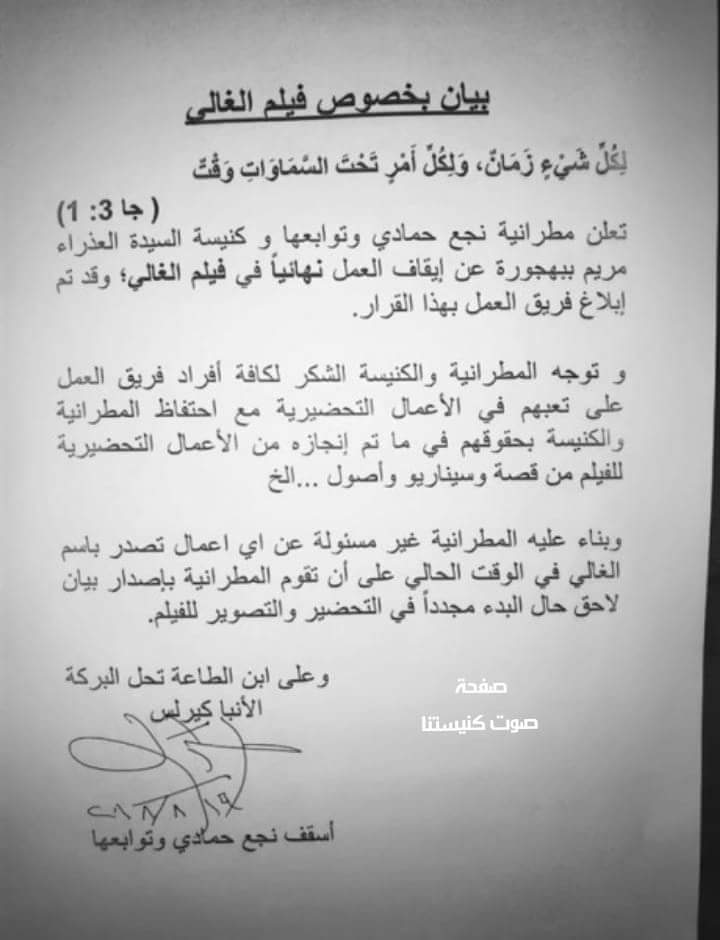 بيان بخصوص فيلم الغالي
لِكُلِّ شَيْءٍ زَمَانٌ، وَلِكُلِّ أَمْرٍ تَحْتَ السَّمَاوَاتِ وَقْتٌ
(جا 3: 1)
تعلن مطرانية نجع حمادي وتوابعها و كنيسة السيدة العذراء
مريم ببهجورة عن إيقاف العمل نهائياً في فيلم الغالي؛ وقد تم
إبلاغ فريق العمل بهذا القرار.
و توجه المطرانية والكنيسة الشكر لكافة أفراد فريق العمل
على تعبهم في الأعمال التحضيرية مع احتفاظ المطرانية
والكنيسة بحقوقهم في ما تم إنجازه من الأعمال التحضيرية
للفيلم من قصة وسيناريو وأصول ...الخ
وبناء عليه المطرانية غير مسئولة عن اي اعمال تصدر باسم
الغالي في الوقت الحالي على أن تقوم المطرانية بإصدار بيان
لاحق حال البدء مجدداً في التحضير والتصوير للفيلم.
وعلى ابن الطاعة تحل البركة
الأنبا كيرلس
أسقف نجع حمادي وتوابعها
صفحة
صوت كنيستنا